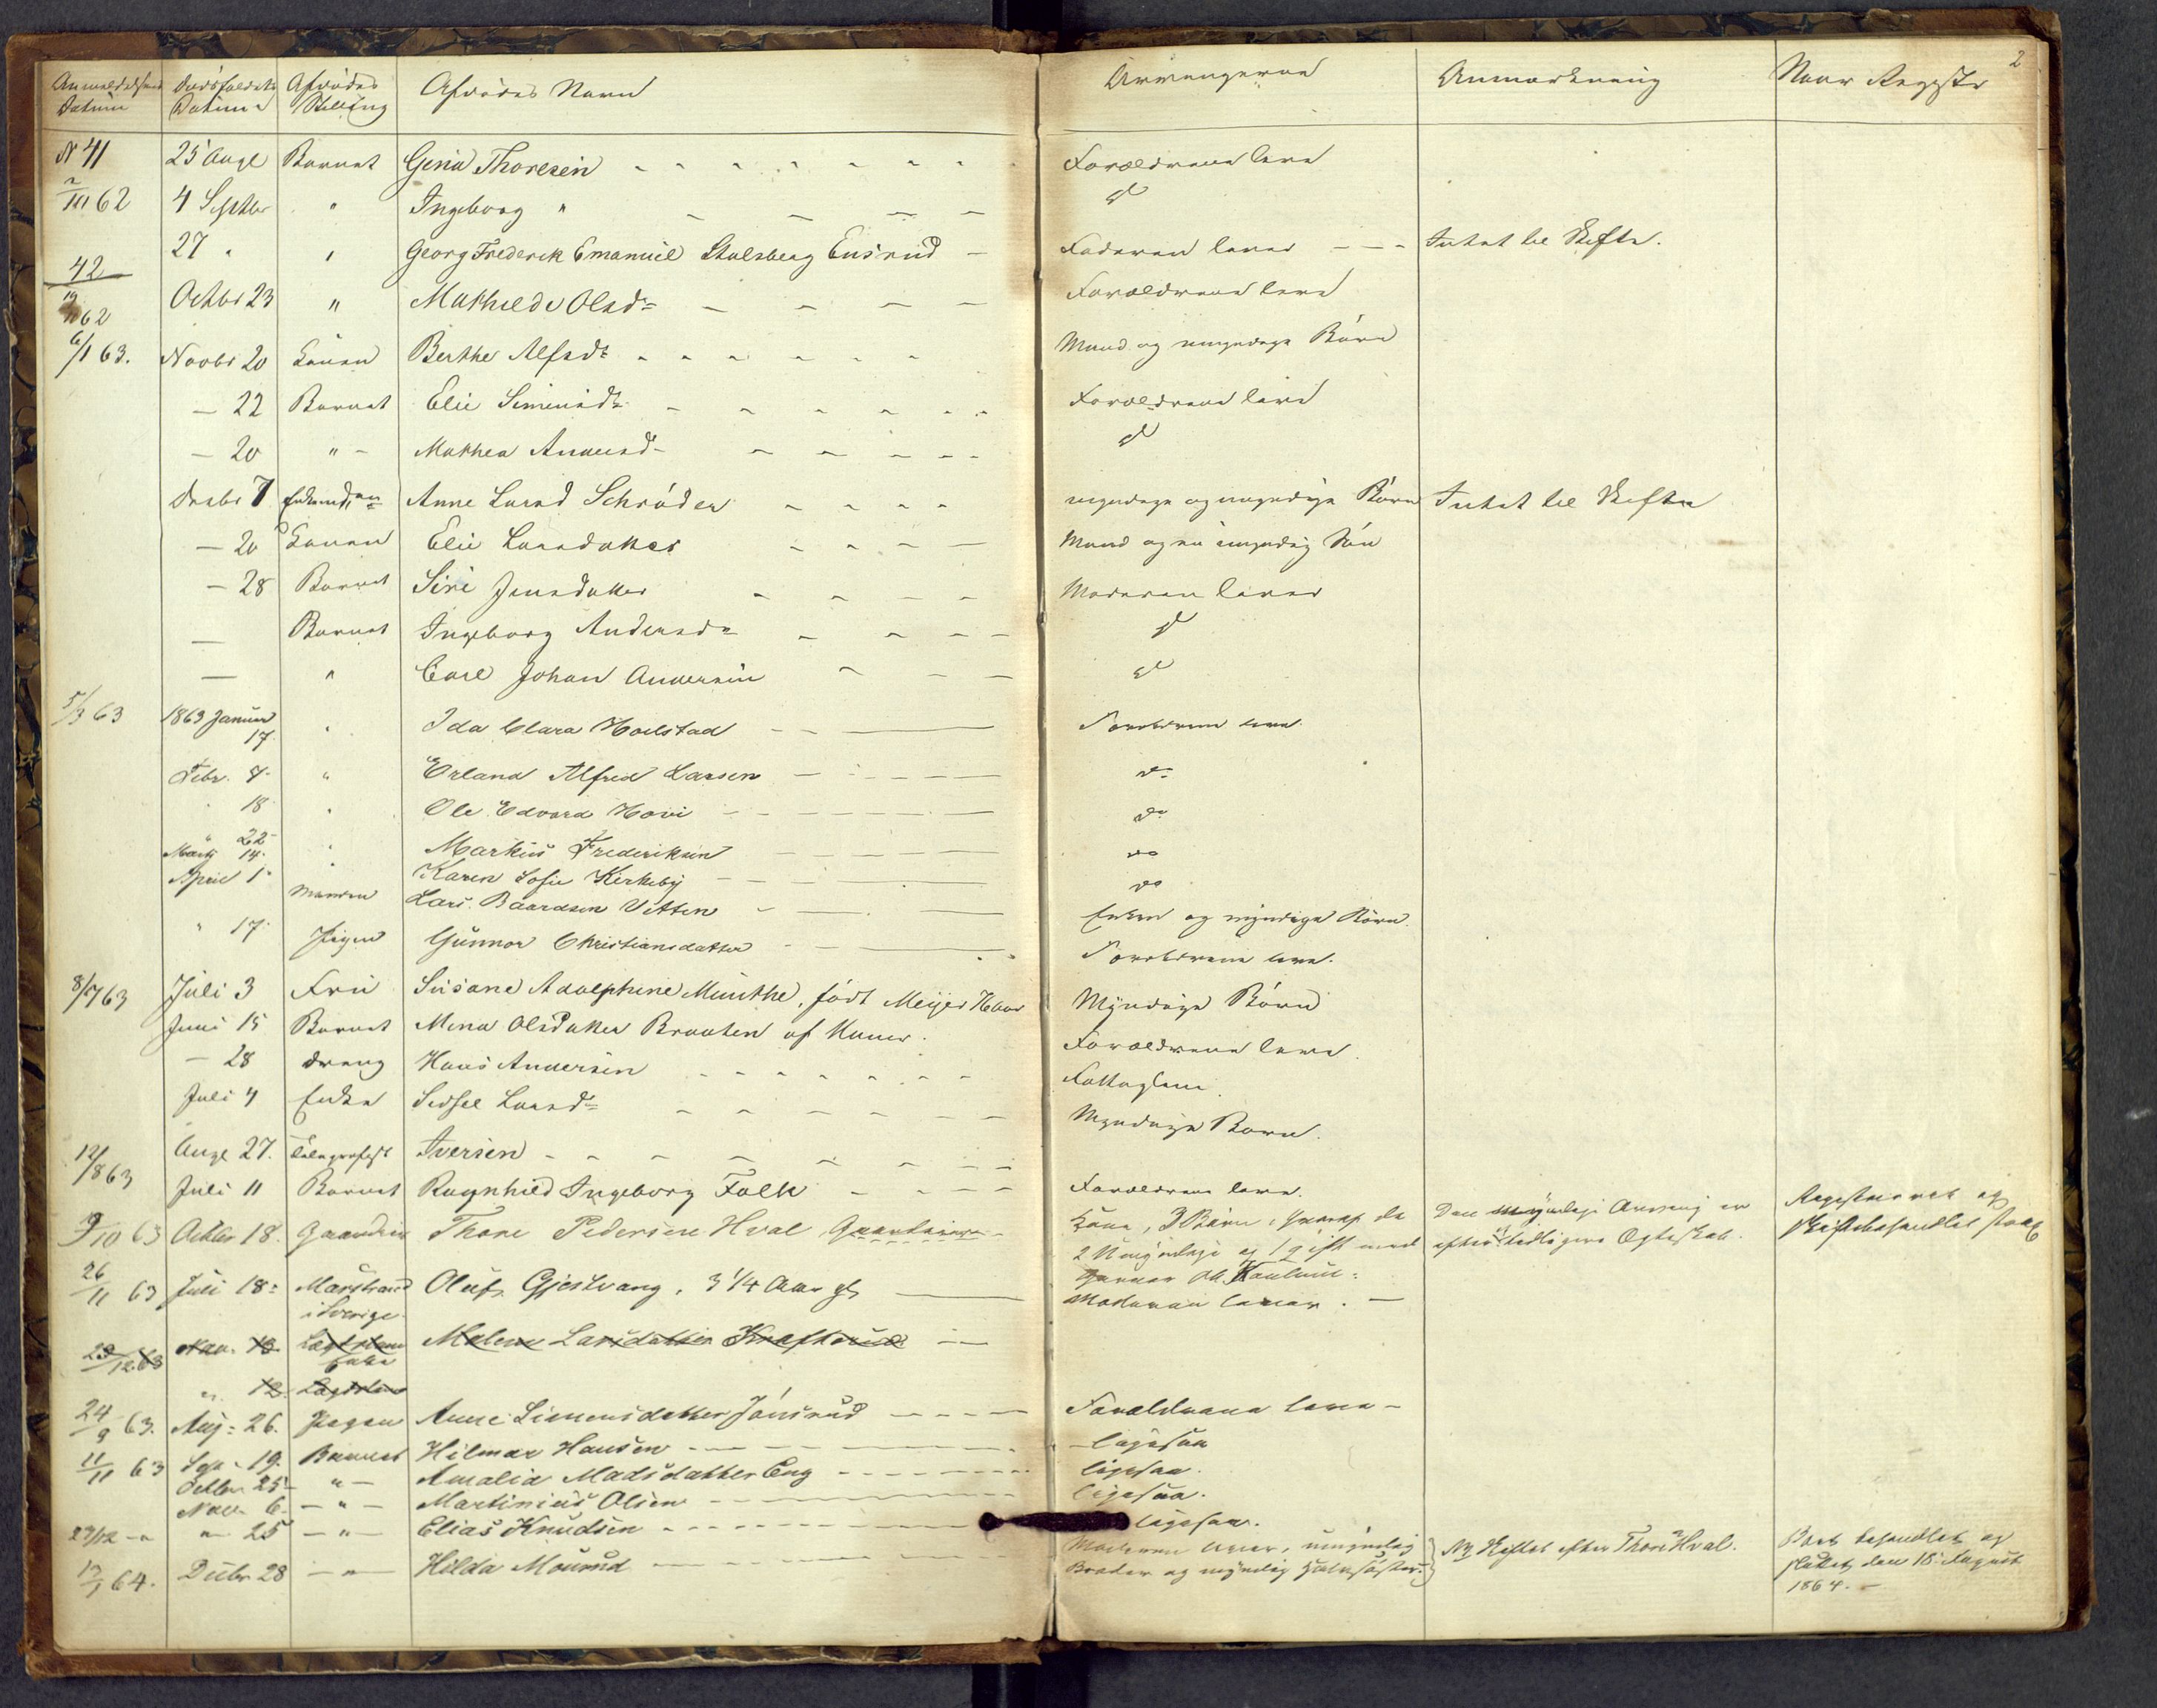 2
Anmeldelsens Datum Dødsfaldets Datum Afdødes Stilling Afdødes Navn Arvingerne Anmærkning Naar Registr
N 41 25 Augt Barnet Gina Thoresen Forældrene leve
2/10 62 4 Septbr " Ingeborg " d
27 " " Georg Frederik Emanuel Stalsberg Ensrud Faderen lever Intet til Skifte.
42
19/11 62 Octbr 23 " Mathilde Olsdr Forældrene leve
6/1 63. Novbr 20 Konen Berthe Alfsdr Mand og umyndige Børn
— 22 Barnet Elie Simensdr Forældrene leve
— 20 " - Mathea Andersdr d
Decbr 7 Anne Larsd Schrøder myndige og umyndige Børn Intet til Skifte
— 20 Konen Elie Larsdatter Mand og en umyndig Søn
— 28 Barnet Siri Jensdatter Moderen lever
— Barnet Ingeborg Andersdr d
— " Carl Johan Andersen d
5/3 63 1863 Januar 17 " Ida Clara Hoelstad Forældrene leve
Febr. 7. " Erland Alfred Larsen do
" 18 " Ole Edvard Hovi do
" 22 " Markus Frederiksen do
Marts 14. " Karen Sofie Kirkeby do
April 1. Manden Lars Baardsen Vetten Enken og myndige Børn.
" 17. Pigen Gunnor Christiansdatter Forældrene leve.
8/7 63 Juli 3 Fru Susane Adolphine Munthe, født Meijer Myndige Børn
Juni 15 Barnet Mina Olsdatter Braaten af Forældrene leve.
— 28 dreng Hans Andersen
Juli 4 Enke Sidsel Larsdr Myndige Børn.
12/8 63 Augt 27. Telegrafist Iversen
Juli 11 Barnet Ragnhild Ingeborg Falk Forældrene leve.
9/10 63 Octbr 18. Gaardm Thore Pedersen Hval Kone, 3 Børn, hvoraf de
2 Umyndige og 1 gift med
Den myndige Arving er
efter tidligere Ægteskab.
Registreret og
Skiftebehandlet
26/11 63 Juli 18 Marstrand i Sverige Oluf Gjestvang, 3 1/4 Aar gl Moderen lever.
23/12 63 Nov. 10 Enke Malene Larsdatter Krafterud
" 12. Lægdslem
24/9 63. Aug: 26. Pigen Anne Simensdatter Jønsrud Forældrene leve —
11/11 63 Sep. 19. Barnet Hilmar Hansen — ligesaa
Octbr 25 — " — Amalia Madsdatter Eng ligesaa.
Novr 6. — " — Martinius Olsen ligesaa.
23/12 — " " 25 — " — Elias Knudsen ligesaa.
13/1 64. Decbr 28 — " — Hilda Mourud Moderen lever, umyndig
Broder og myndig Halvsøster.
Skiftet efter Thore Hval.
Boet behandlet og
sluttet den 18 August
1864. —